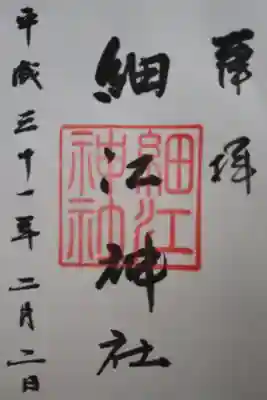 奉拝
細江神社
細江神社
平成三十一年二月二日